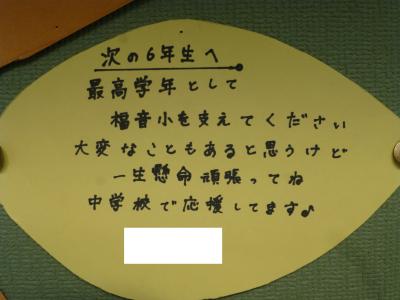 次の6年生へ
最高学年として
福音小を支えてください
大変なこともあると思うけど
一生懸命頑張ってね
中学校で応援してます♪